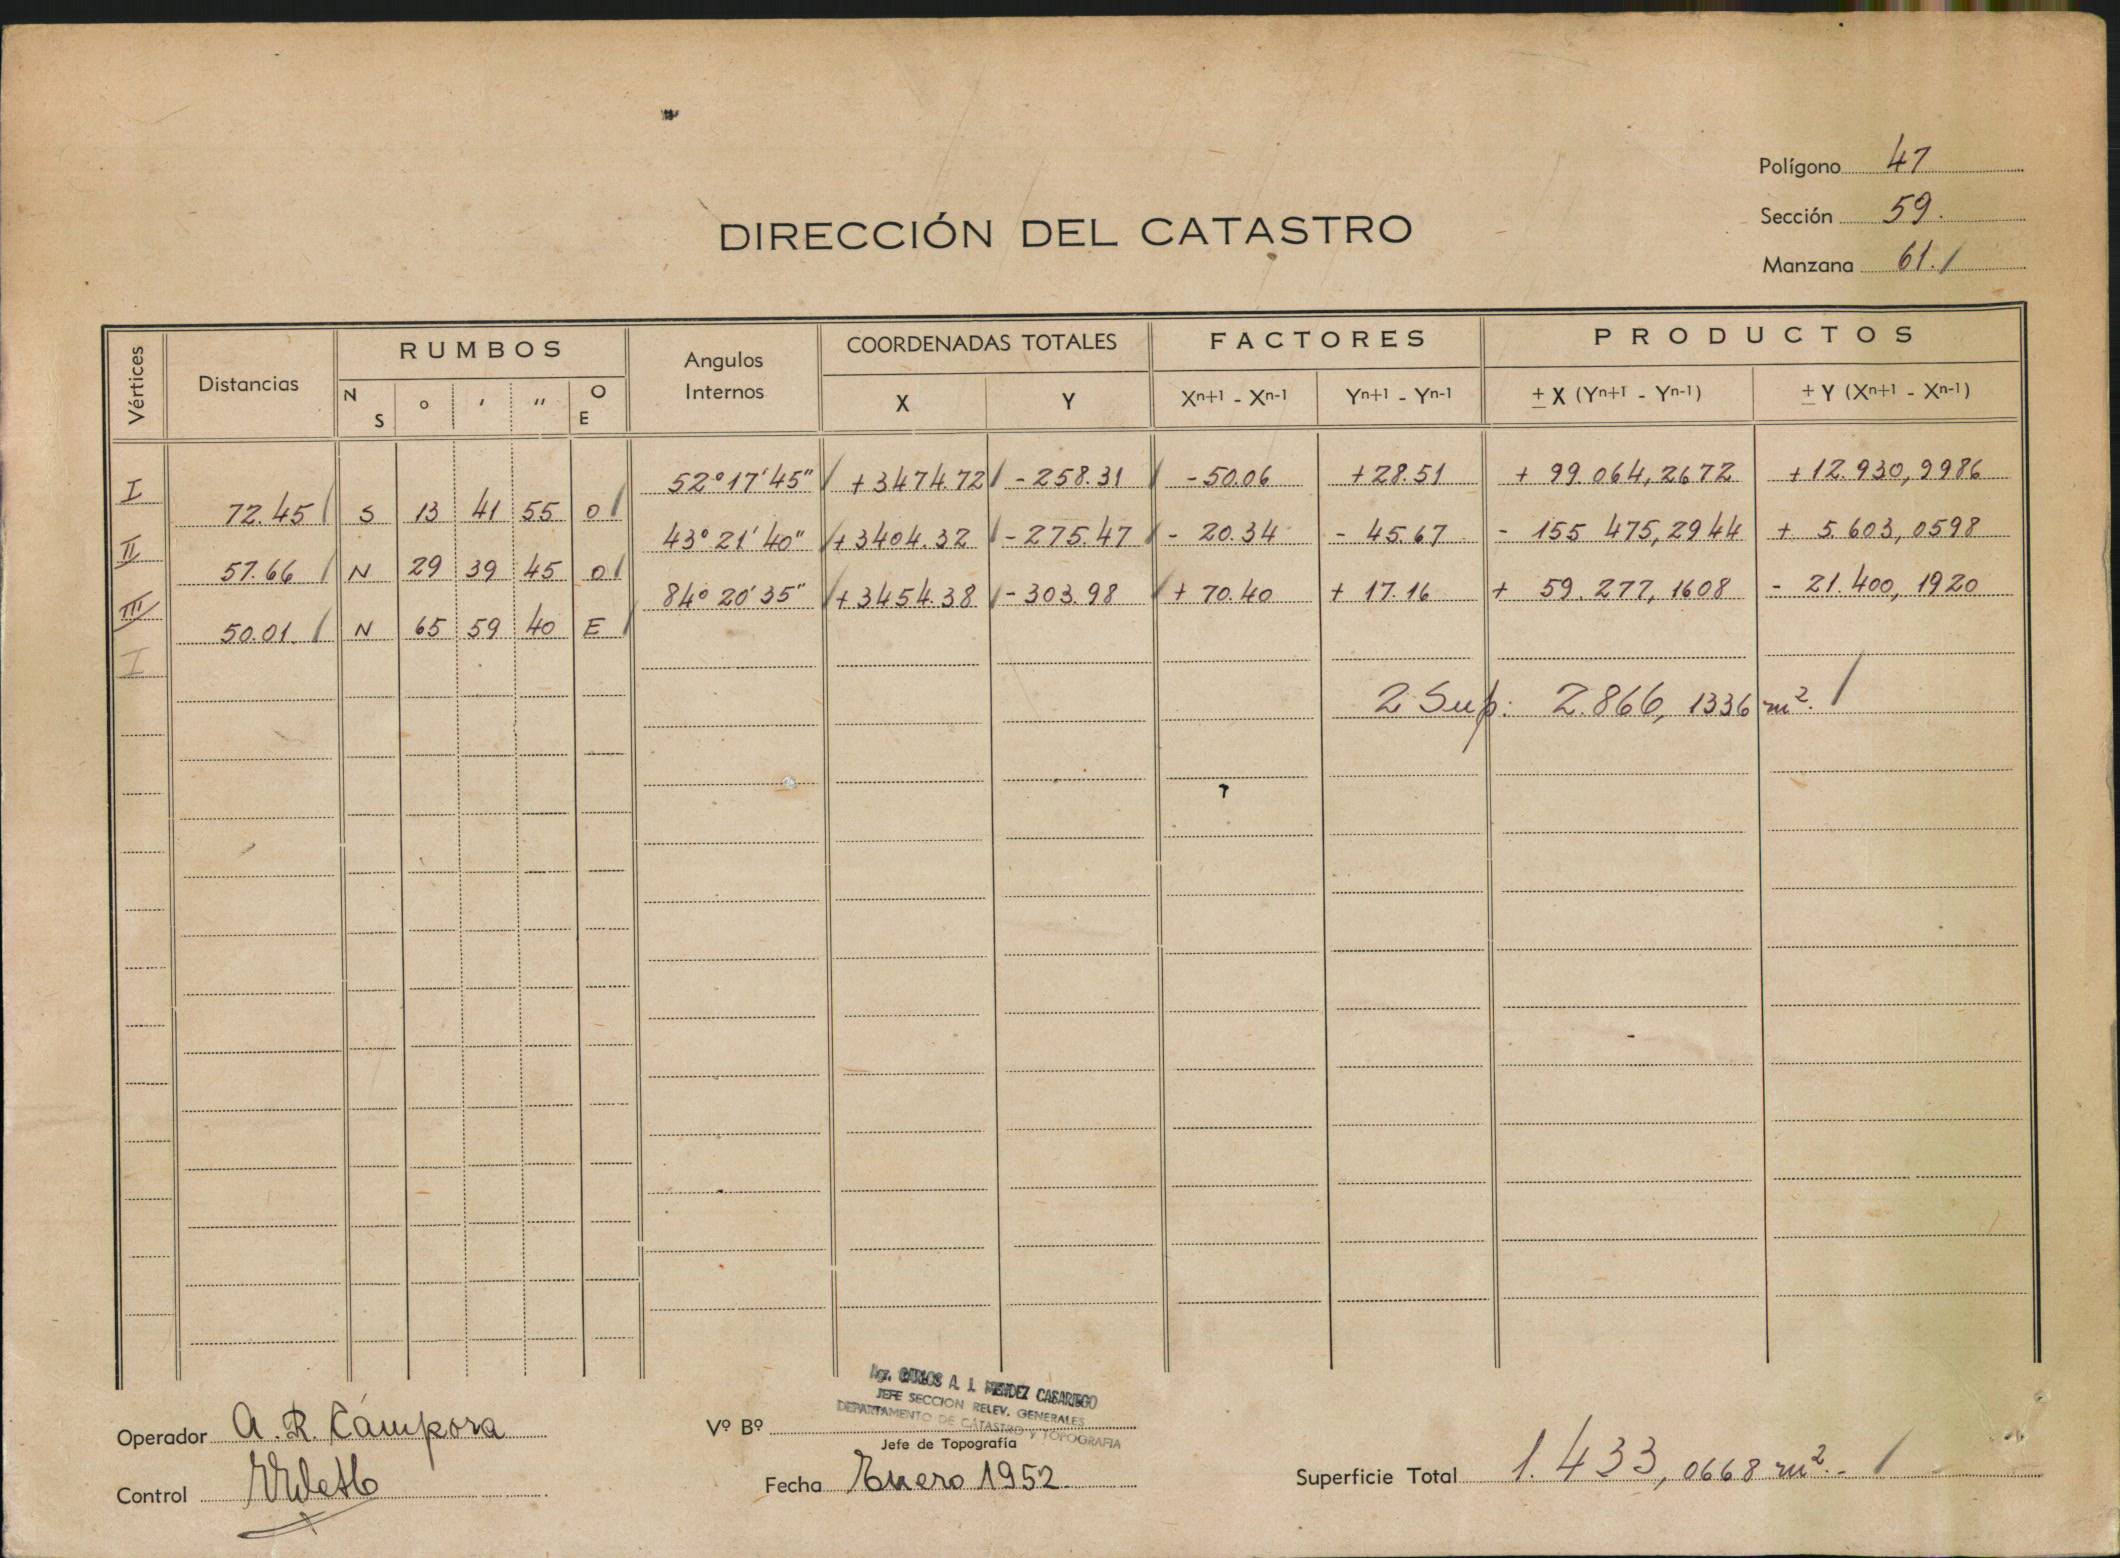 Polígono 47
DIRECCIÓN DEL CATASTRO
Sección 59.
Manzana 61.
Vértices Distancias RUMBOS N S ° ' " O E Angulos Internos COORDENADAS TOTALES X Y FACTORES Xn+1 - Xn-1 Yn+1 - Yn-1 PRODUCTOS ± X (Yn+1 - Yn-1) ± Y (Xn+1 - Xn-1)
I 52° 17' 45" + 3474.72 - 258.31 - 50.06 + 28.51 + 99.064,2672 + 12.930,9986
72.45 S 13 41 55 O
II 43° 21' 40" + 3404.32 - 275.47 - 20.34 - 45.67 - 155 475,2944 + 5.603,0598
57.66 N 29 39 45 O
III 84° 20' 35" + 3454.38 - 303.98 + 70.40 + 17.16 + 59.277,1608 - 21.400,1920
50.01. N 65 59 40 E
I
2 Sup: 2.866,1336 m².
Agr. CARLOS A. J. MENDEZ CASARIEGO
JEFE SECCION RELEV. GENERALES
DEPARTAMENTO DE CATASTRO Y TOPOGRAFIA
Operador A. R. Cámpora
Vº Bº
Jefe de Topografía
Control
Fecha Enero 1952
Superficie Total 1.433,0668 m².-